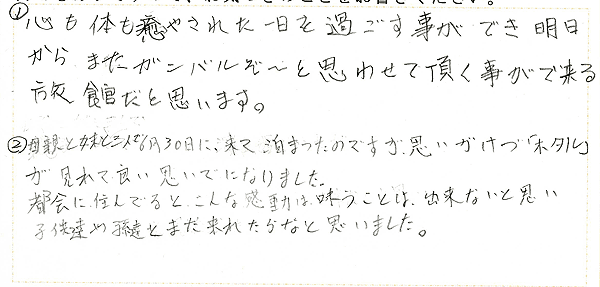 ①心も体も癒やされた一日を過ごす事ができ明日
からまたガンバルぞ〜と思わせて頂く事がで来る
旅館だと思います。
②母親と妹と三人で6月30日に、来て泊まったのですが、思いがけづ「ホタル」
が見れて良い思いでになりました。
都会に住んでると、こんな感動は味うことは、出来ないと思い
子供達や孫達とまた来れたらなと思いました。